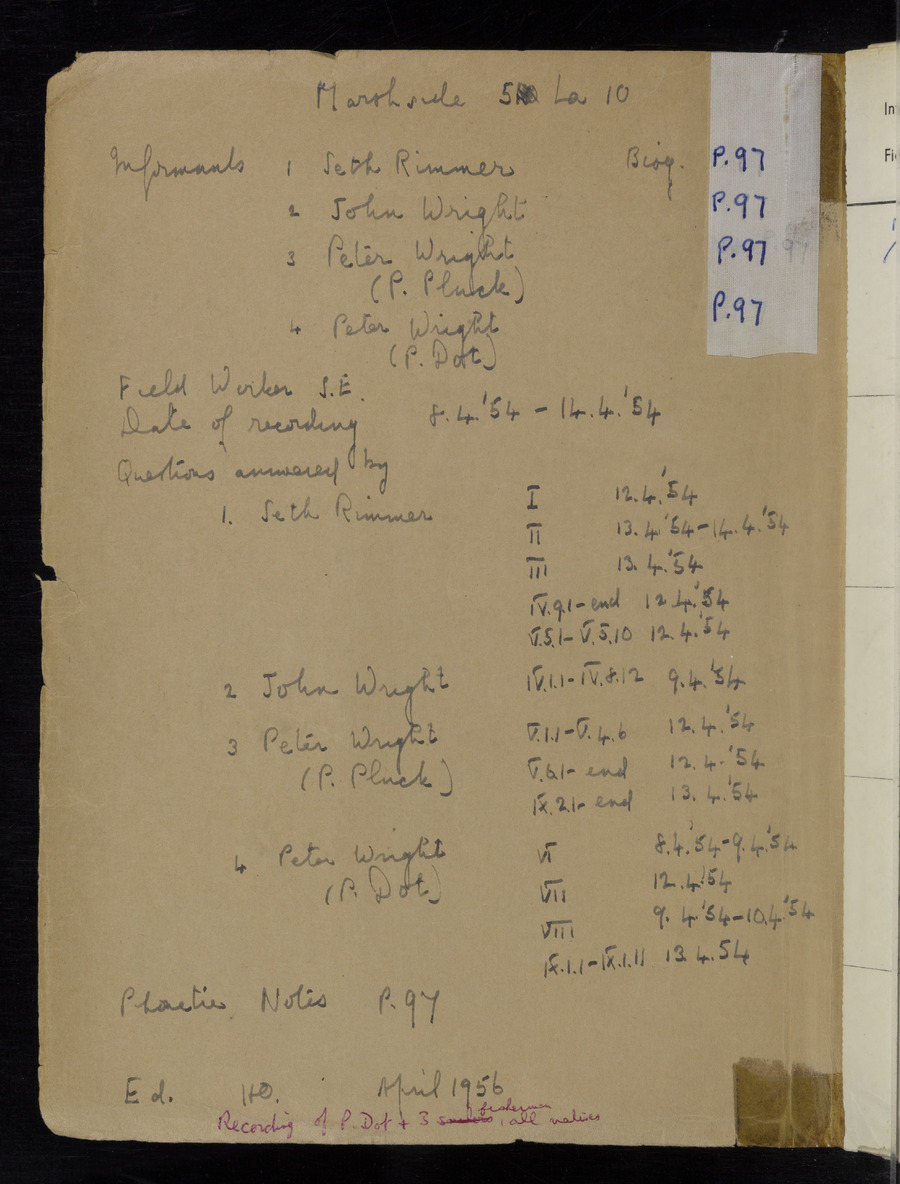 Marshside 5 La 10
Informants 1 Seth Rimmer Biog. P.97
2 John Wright P.97
3 Peter Wright P.97 97
(P. Pluck)
4 Peter Wright P.97
(P. Dot)
Field Worker S.E.
Date of recording 8.4.'54 - 14.4.'54
Questions answered by
1. Seth Rimmer I 12.4.'54
II 13.4.'54-14.4.'54
III 13.4.'54
IV.9.1- end 12.4.'54
V.5.1- V.5.10 12.4.'54
2 John Wright IV.1.1-IV.8.12 9.4.'54
3 Peter Wright V.1.1-V.4.6 12.4.'54
(P. Pluck) V.6.1- end 12.4.'54
IX.2.1- end 13.4.'54
4 Peter Wright VI 8.4.'54-9.4.'54
(P. Dot) VII 12.4.'54
VIII 9.4.'54-10.4.'54
IX.1.1-IX.1.11 13.4.54
Phonetic Notes P.97
Ed. HO. April 1956
fishermen
Recording of P. Dot + 3 , all natives
In
Fi